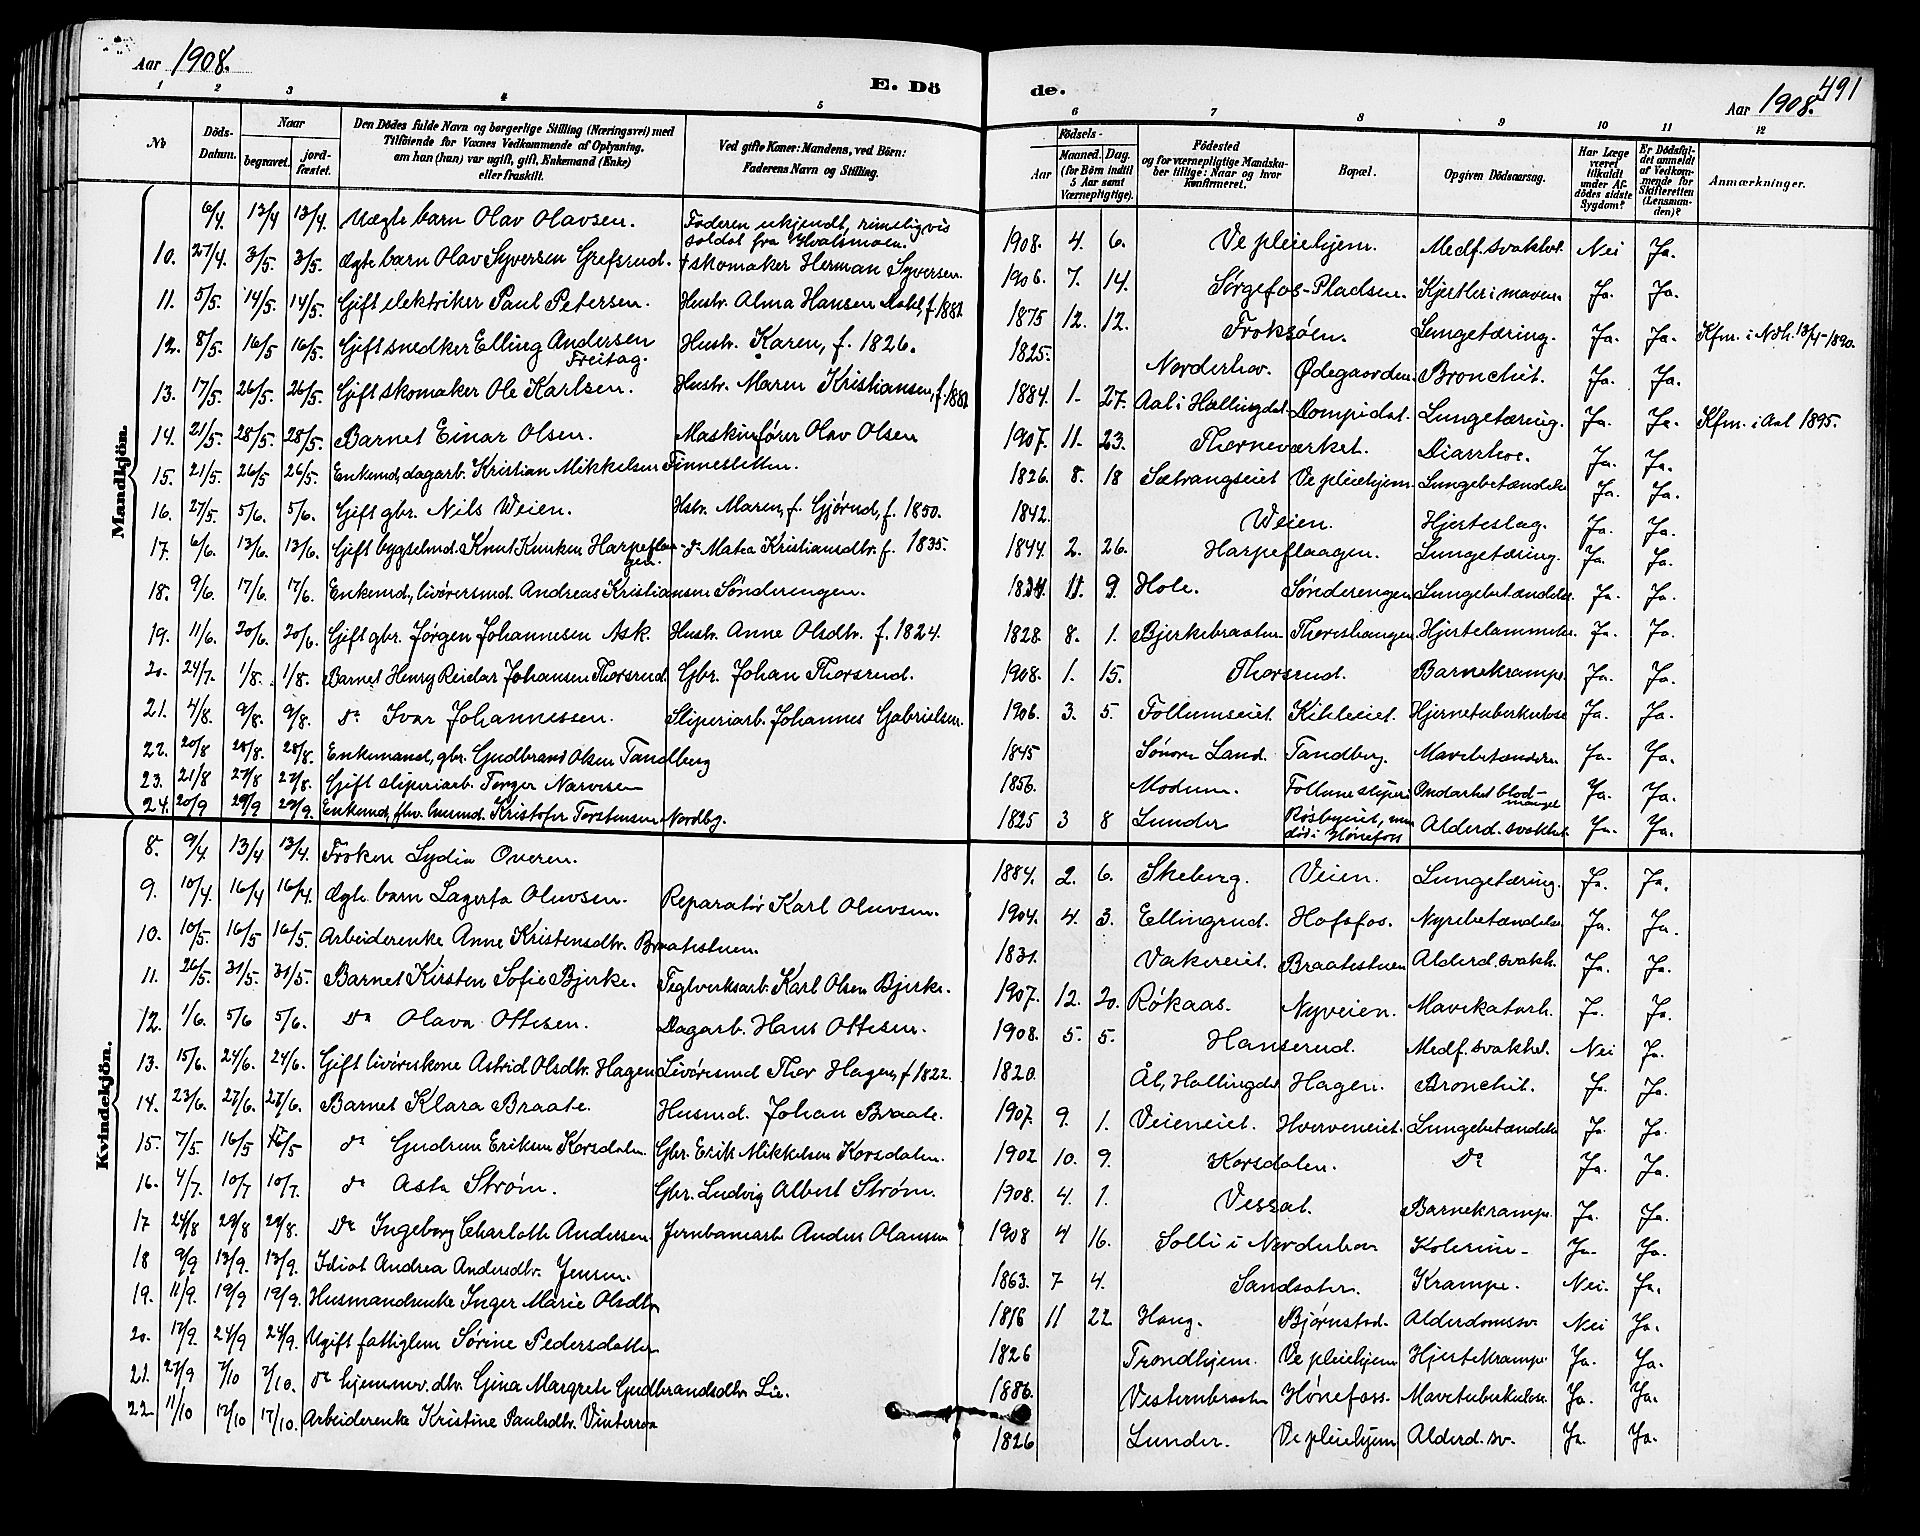 Aar 1908.
E. Dö
de.
Aar 1908.
491
1 2 3 4 5 6 7 8 9 10 11 12
No
Döds-Datum.
Naar
begravet.
jord-fæstet.
Den Dödes fulde Navn og borgerlige Stilling (Næringsvei) med
Tilföiende for Voxnes Vedkommende af Oplysning,
om han (hun) var ugift, gift, Enkemand (Enke)
eller fraskilt.
Ved gifte Koner: Mandens, ved Börn:
Faderens Navn og Stilling.
Födsels-
Aar
Maaned. Dag.
(for Börn indtil
5 Aar samt
Værnepligtige).
Födested
og for værnepligtige Mandska-
ber tillige: Naar og hvor
konfirmeret.
Bopæl.
Opgiven Dödsaarsag.
Har Læge
været
tilkaldt
under Af-
dödes sidste
Sygdom?
Er Dödsfal-
det anmeldt
af Vedkom-
mende for
Skifteretten
(Lensman-
den)?
Anmærkninger.
Mandkjön.
6/4 13/4 13/4. Uægte barn Olav Olavsen. Faderen ukjendt, rimeligvis soldat fra Hvalsmoen. 1908. 4. 6. Ve pleiehjem. Medf. svakhet Nei Ja.
10. 27/4. 3/5. 3/5. Ægte barn Olav Syversen Grefsrud. † skomaker Herman Syversen. 1906. 7. 14. Sørgefos-Pladsen. Kjertler i maven. Ja. Ja.
11. 5/5. 14/5. 14/5. Gift elektriker Paul Petersen. Hustr. Alma Hansen f. 1882 1875 12. 12. Froksøen. Lungetæring. Ja. Ja. Kfm. i Ndh. 13/4-1890.
12. 8/5. 16/5 16/5. Gift snedker Elling Andersen Freitag. Hustr. Karen, f. 1826. 1825. Norderhov. Ødegaarden. Bronchit. Ja. Ja.
13. 17/5. 26/5 26/5. Gift skomaker Ole Karlsen. Hustr. Maren Kristiansen, f. 1882 1884. 1. 27. Aal i Hallingdal. Dompidal. Lungetæring. Ja. Ja. Kfm. i Aal 1895.
14. 21/5. 28/5. 28/5. Barnet Einar Olsen. Maskinfører Olav Olsen 1907. 11. 23. Thorneværket. Diarrhoe. Ja. Ja.
15. 21/5. 26/5 26/5. Enkemd, dagarb. Kristian Mikkelsen Finnesletten. 1826. 8. 18 Sætrangseiet Ve pleiehjem Lungebetændelse Ja. Ja.
16. 27/5. 5/6. 5/6. Gift gbr. Nils Weien. Hstr. Maren, f. Gjørud, f. 1850. 1842. Weien. Hjerteslag. Ja. Ja.
17. 6/6. 13/6. 13/6. Gift bygselmd. Knut Knutsen Harpeflaagen. do Matea Kristiansdtr. f. 1835. 1844. 2. 26. Harpeflaagen. Lungetæring. Ja. Ja.
18. 9/6. 17/6. 17/6. Enkemd, livøresmd. Andreas Kristiansen Sønderengen. 1834. 11. 9 Hole. Sønderengen Lungebetændelse. Ja. Ja.
19. 11/6. 20/6. 20/6. Gift gbr. Jørgen Johannesen Ask. Hustr. Anne Olsdtr. f. 1824. 1828. 8. 1. Bjerkebraaten Hjertelammelse. Ja. Ja.
20. 24/7. 1/8. 1/8. Barnet Henry Reidar Johansen Thorsrud. Gbr. Johan Thorsrud. 1908. 1. 15. Thorsrud. Barnekrampe. Ja. Ja.
21. 4/8. 9/8. 9/8. do Ivar Johannessen. Sliperiarb. Johannes Gabrielsen. 1906. 3. 5. Follumseiet. Kihleiet. Hjernetuberkulose Ja. Ja.
22. 20/8 28/8. 28/8. Enkemand, gbr. Gudbrand Olsen Tandberg 1845 Søndre Land. Tandberg. Mavebetændelse Ja. Ja.
23. 21/8 27/8 27/8. Gift sliperiarb. Torger Narvesen 1856. Modum. Follum sliperi Ondartet blodmangel Ja. Ja.
24. 20/9 29/9 29/9. Enkemd, fhv. husmd. Kristofer Torstensen Nordby. 1825 3 8 Lunder Røsbyeiet, men død i Hønefoss Alderd. svakhet. Ja. Ja.
Kvindekjön.
8. 9/4 13/4 13/4. Frøken Lydia Overen. 1884. 2. 6. Skeberg. Veien. Lungetæring. Ja. Ja.
9. 10/4. 16/4 16/4. Ægte barn Lagerta Oluvsen. Reparatør Karl Oluvsen. 1904. 4. 3. Ellingrud. Hofsfos. Nyrebetændelse. Ja. Ja.
10. 10/5. 16/5 16/5. Arbeiderenke Anne Kristensdtr. Braatestuen. 1831. Vakereiet. Braatestuen Alderd. svakh. Ja. Ja.
11. 26/5. 31/5. 31/5. Barnet Kirsten Sofie Bjerke. Teglverksarb. Karl Olsen Bjerke. 1907. 12. 20. Røkaas. Nyveien. Mavekatarh. Ja. Ja.
12. 1/6. 5/6 5/6. Do Olava Ottesen. Dagarb. Hans Ottesen. 1908. 5. 5. Hanserud. Medf. svakhet. Nei Ja.
13. 15/6. 24/6. 24/6. Gift livøreskone Astrid Olsdtr. Hagen Livøresmd Thor Hagen, f 1822. 1820. Ål, Hallingdal Hagen. Bronchit. Ja. Ja.
14. 23/6. 27/6. 27/6. Barnet Klara Braate. Husmd. Johan Braate. 1907. 9. 1. Veieneiet. Hverveneiet. Lungebetændelse Ja. Ja.
15. 7/5. 16/5 16/5 do Gudrun Eriksen Korsdalen. Gbr. Erik Mikkelsen Korsdalen. 1902 10. 9. Korsdalen. Do Ja. Ja.
16. 4/7. 10/7 10/7. do Asta Strøm. Gbr. Ludvig Albert Strøm. 1908. 4. 1. Vessal. Barnekrampe. Ja. Ja.
17 24/8 29/8 29/8. Do Ingeborg Charlotte Andersen. Jernbanearb Anders Olausen 1908 4 16. Solli i Norderhov Kolerine- Ja. Ja.
18 9/9 13/9. 13/9. Idiot Andrea Andersdtr. Jensen. 1863. 7 4. Krampe. Nei. Ja.
19. 11/9. 19/9 19/9. Husmandsenke Inger Marie Olsdtr 1816 11 22 Haug. Bjørnstad. Alderdomssv. Nei Ja.
20. 17/9. 24/9 24/9. Ugift fattiglem Sørine Pedersdatter 1826 Trondhjem. Ve pleiehjem Hjertekrampe. Ja. Ja.
21. 27/9 2/10 2/10. do hjemmev. dtr. Gina Margrete Gudbrandsdtr. Lie. 1886. Vesternbraaten Hønefoss. Mavetuberkulose Ja. Ja.
22. 11/10 17/10 17/10. Arbeiderenke Kristine Paulsdtr. Vinterroa 1826 Lunder. Ve pleiehjem Alderd. sv. Ja. Ja.